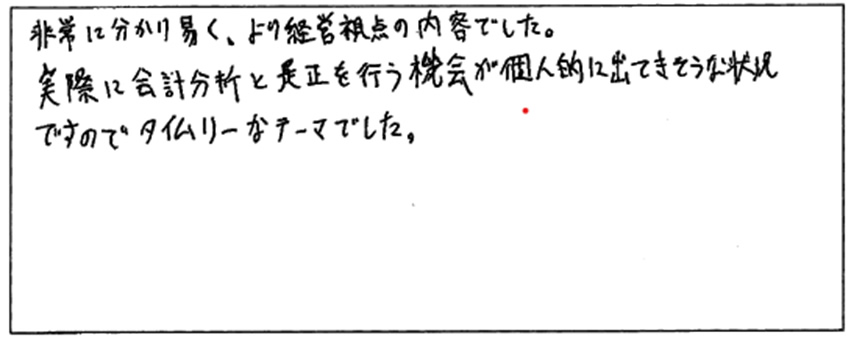 非常に分かり易く、より経営視点の内容でした。
実際に会計分析と是正を行う機会が個人的に出てきそうな状況
ですのでタイムリーなテーマでした。